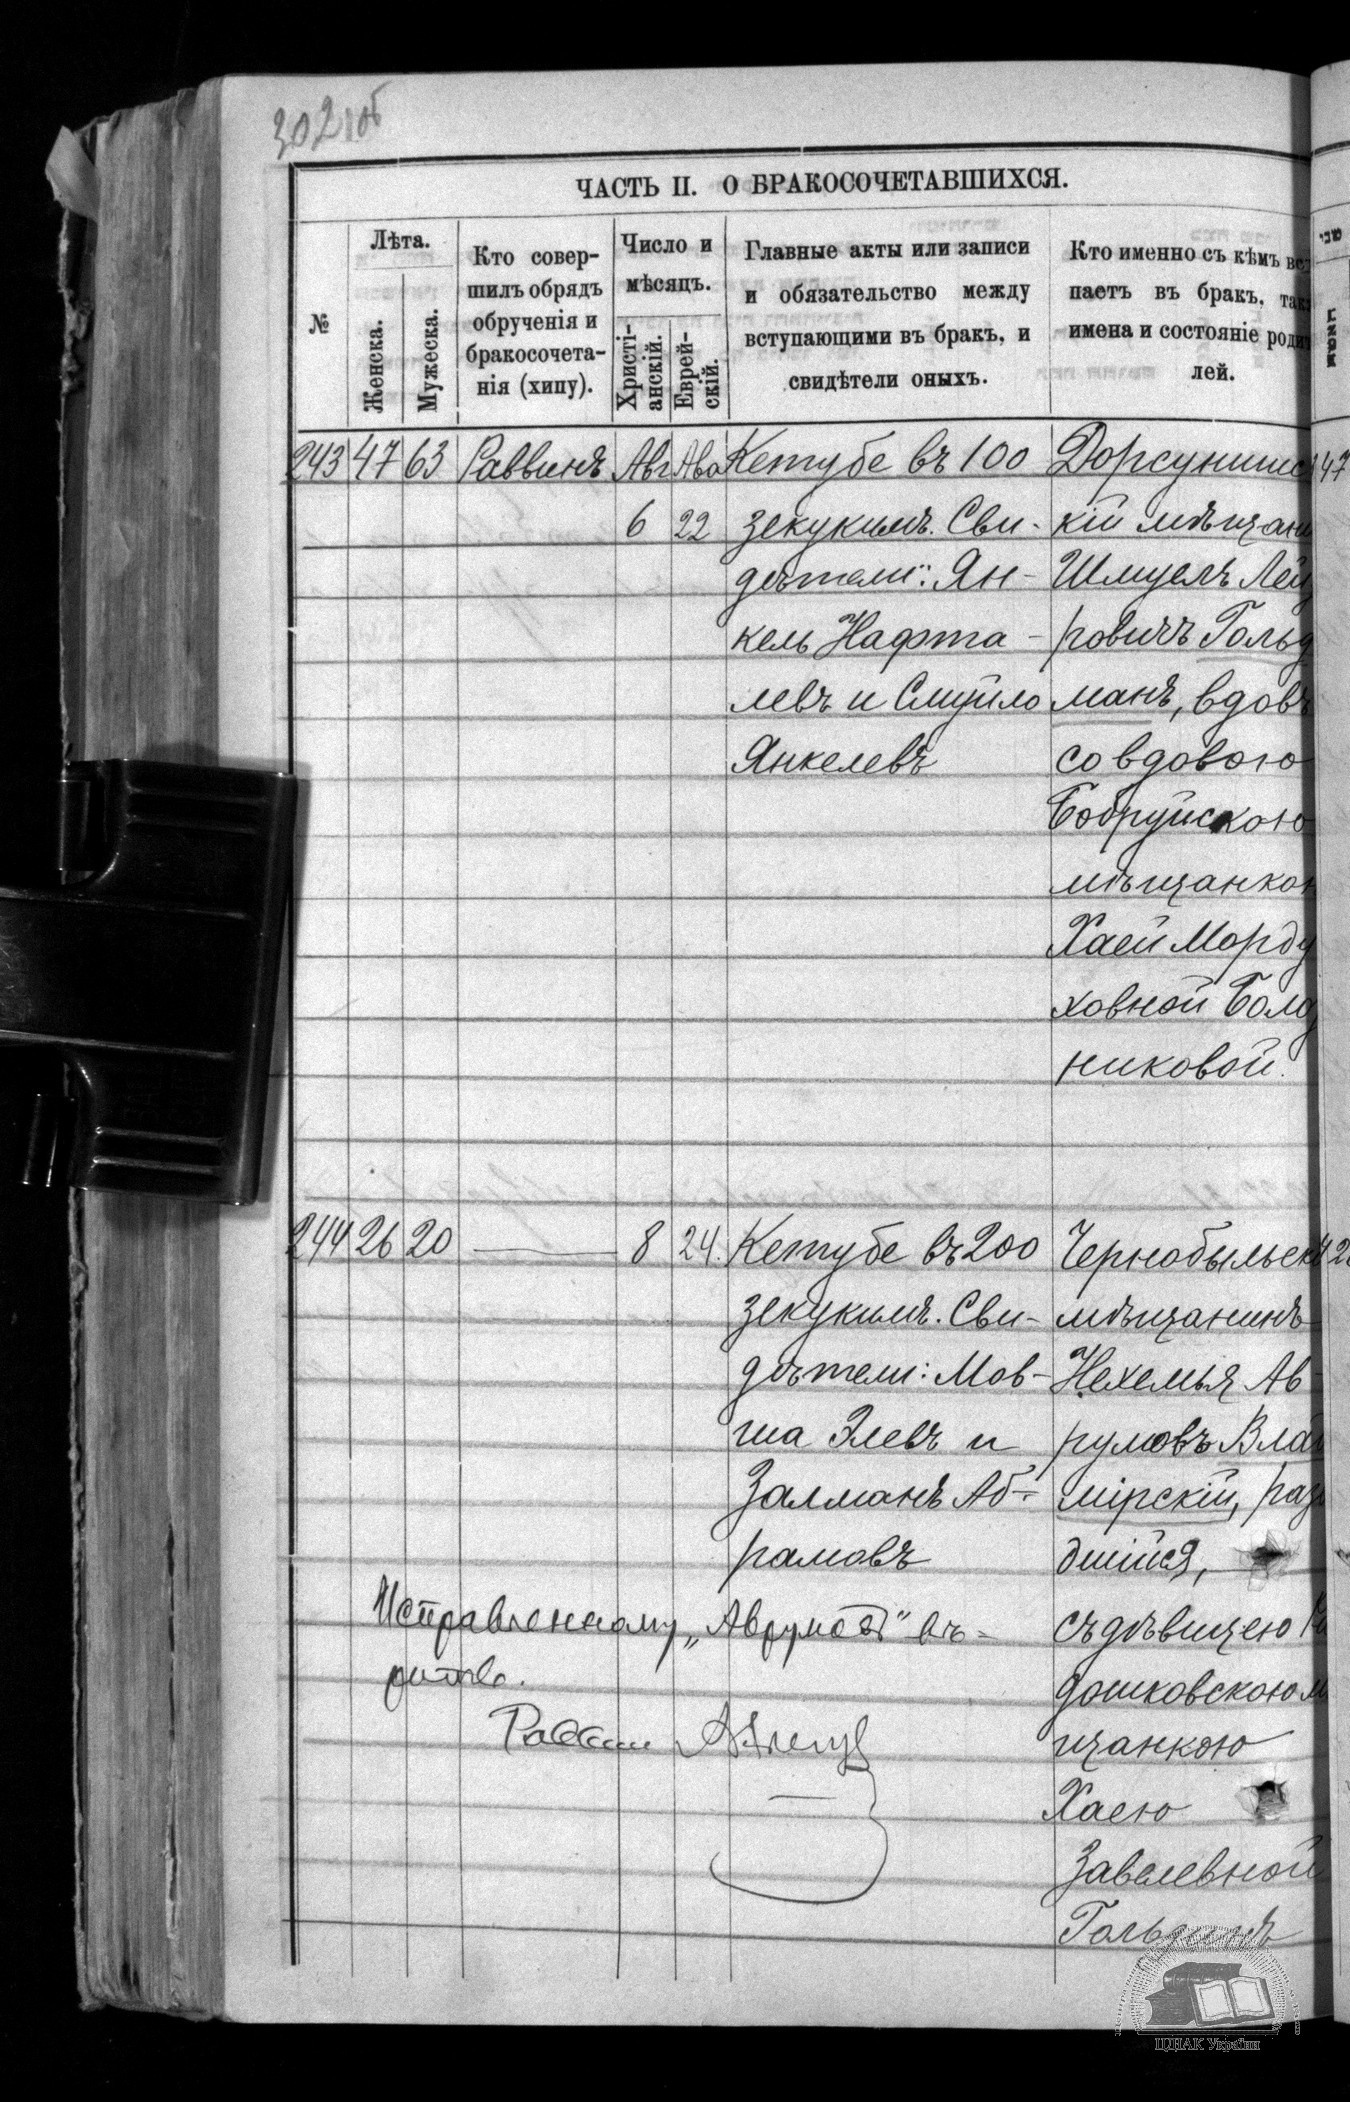 302 об
ЧАСТЬ II. О БРАКОСОЧЕТАВШИХСЯ.
№
Лѣта.
Женска.
Мужеска.
Кто совер-
шилъ обрядъ
обрученія и
бракосочета-
нія (хипу).
Число и
мѣсяцъ.
Христі-
анскій.
Еврей-
скій.
Главные акты или записи
и обязательство между
вступающими въ бракъ, и
свидѣтели оныхъ.
Кто именно съ кѣмъ вс
паетъ въ бракъ, так
имена и состояніе роди
лей.
243 47 63 Раввинъ Авг Ава Кетубе въ 100
6 22 зекукимъ. Сви-
дѣтели: Ян-
кель Нафта-
левъ и Смуйло
Янкелевъ
кій мѣщан
Шмуелъ Лей
ровичъ Гольд
манъ, вдов
со вдовою
Бобруйскою
мѣщанкою
Хаей Морду
ховной Болд
никовой.
47
244 26 20 — 8 24. Кетубе въ 200
зекукимъ. Сви-
дѣтели: Мов-
ша Элевъ и
Залманъ Аб-
рамовъ
Чернобыльск
мѣщанинъ
Нехемья Ав-
румовъ Влад
мірскій, раз
дшійся,
съ дѣвицею
дошковскою м
щанкою
Хаею
Завелевной
Исправленному „Аврумовъ" вѣ-
рить.
Раввин
ЦДІАК України